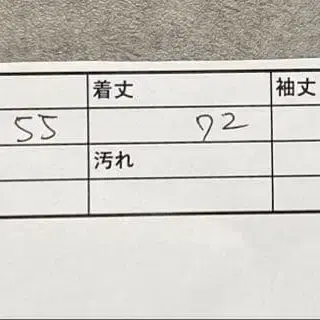 着丈 袖丈
55 72
汚れ